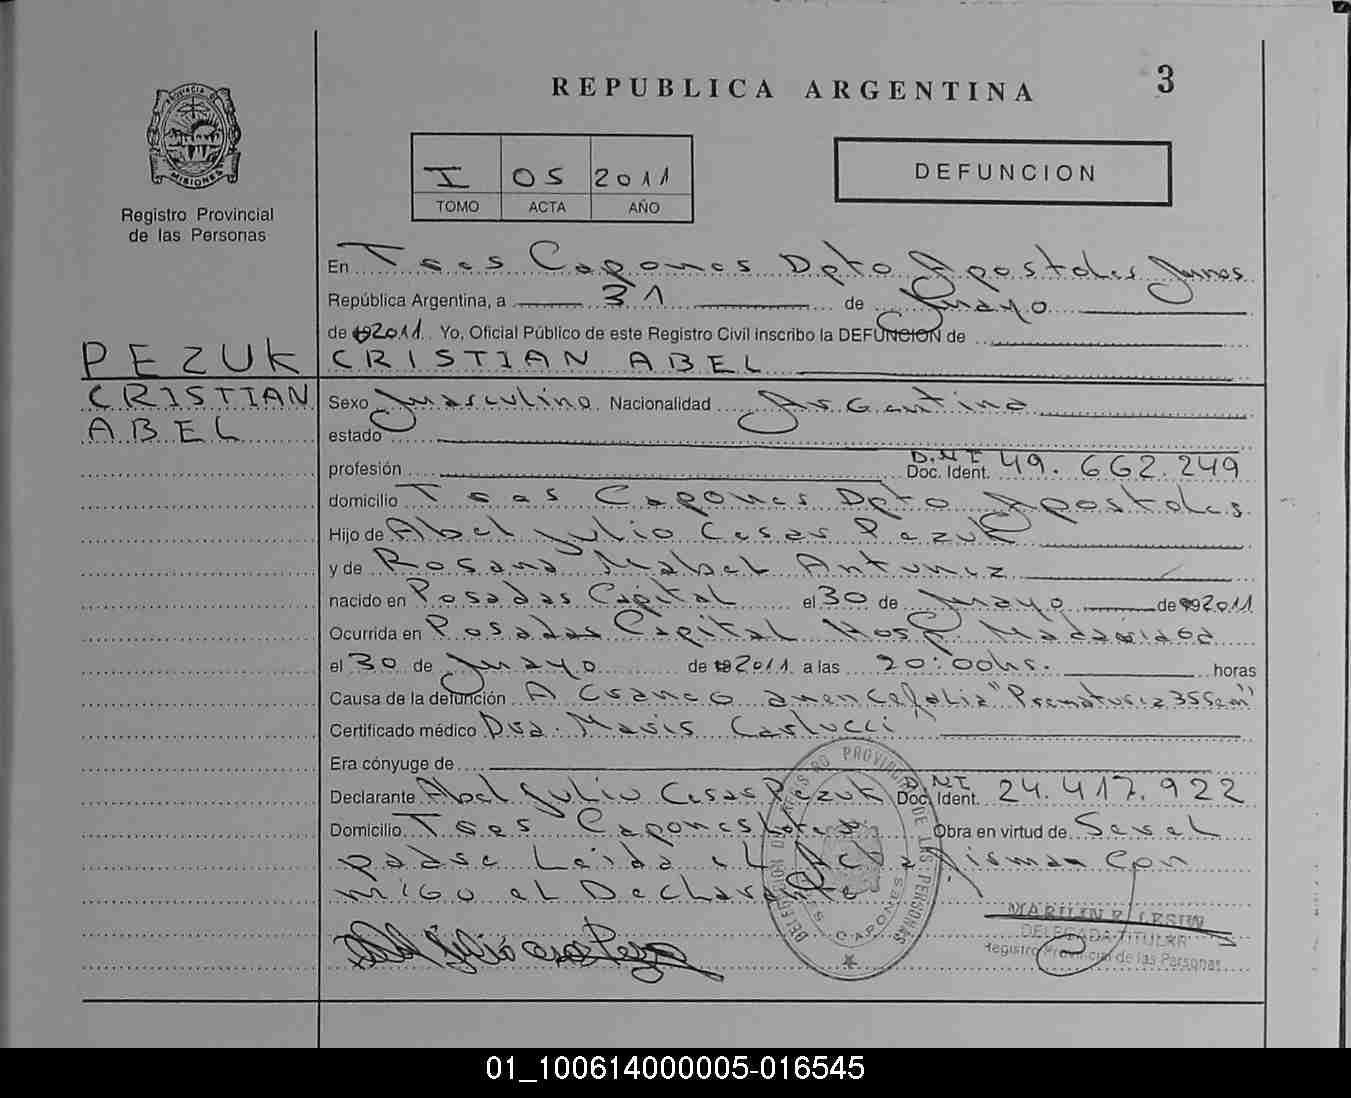 REPUBLICA ARGENTINA
3
PROVINCIA DE
MISIONES
Registro Provincial
de las Personas
I 05 2011
TOMO ACTA AÑO
DEFUNCION
En Tres Capones Dpto Apostoles Mnes
República Argentina, a 31 de Mayo
de 2011. Yo, Oficial Público de este Registro Civil inscribo la DEFUNCION de
PEZUK CRISTIAN ABEL
CRISTIAN
ABEL
Sexo Masculino Nacionalidad Argentina
estado
profesión D.N.I Doc. Ident. 49.662.249
domicilio Tres Capones Dpto Apostoles
Hijo de Abel Julio Cesar Pezuk
y de Rosana Mabel Antuniz
nacido en Posadas Capital el 30 de Mayo de 2011
Ocurrida en Posadas Capital Hosp Madariaga
el 30 de Mayo de 2011 a las 20:00hs. horas
Causa de la defunción A craneo anencefalia "Prematurez 35 Sem"
Certificado médico Dra. Mavis Carlucci
Era cónyuge de
Declarante Abel Julio Cesar Pezuk D.N.I Doc. Ident. 24.417.922
Domicilio Tres Capones Obra en virtud de Ser el
padre Leida el Acta firman Con
migo el Declarante
DELEGACION REGISTRO PROVINCIAL DE LAS PERSONAS
CAPONES
MARILIN R. LESIW
DELEGADA TITULAR
Registro Provincial de las Personas
01_100614000005-016545